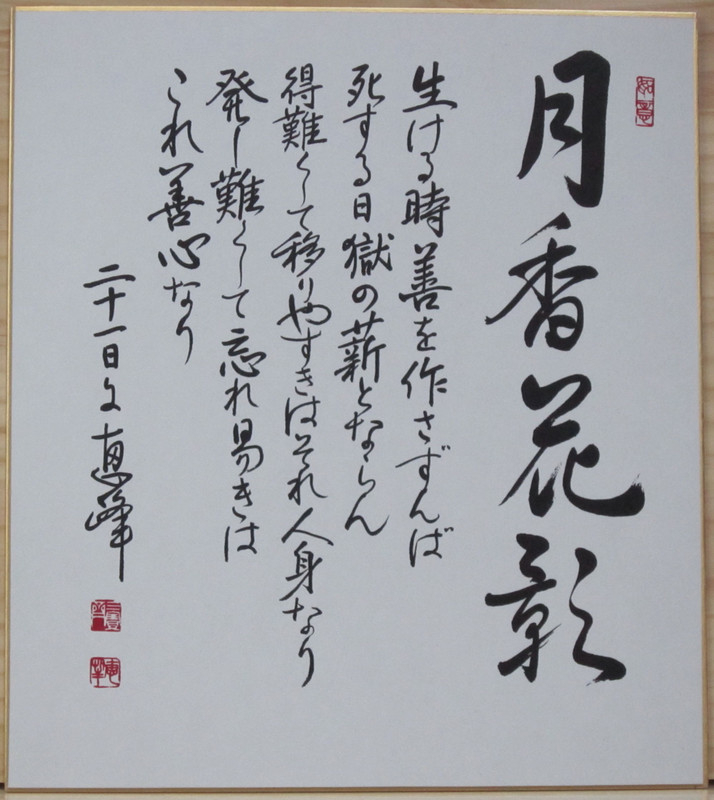 月香花彰
生ける時善を作さずんば
死する日獄の薪とならん
得難くして移りやすきはそれ人身なり
発し難くして忘れ易きは
これ善心なり
二十一日 恵峰